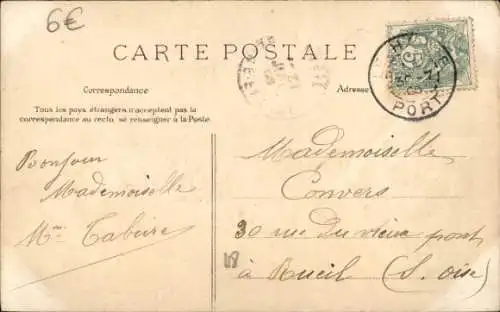 6€
CARTE POSTALE
Correspondance
Adresse
Tous les pays étrangers n'acceptent pas la
correspondance au recto, se renseigner à la Poste.
PORT
Bonjour
Mademoiselle
Mme Tabeire
Mademoiselle
Convers
30 rue du vieux pont
à Rueil (S. Oise)